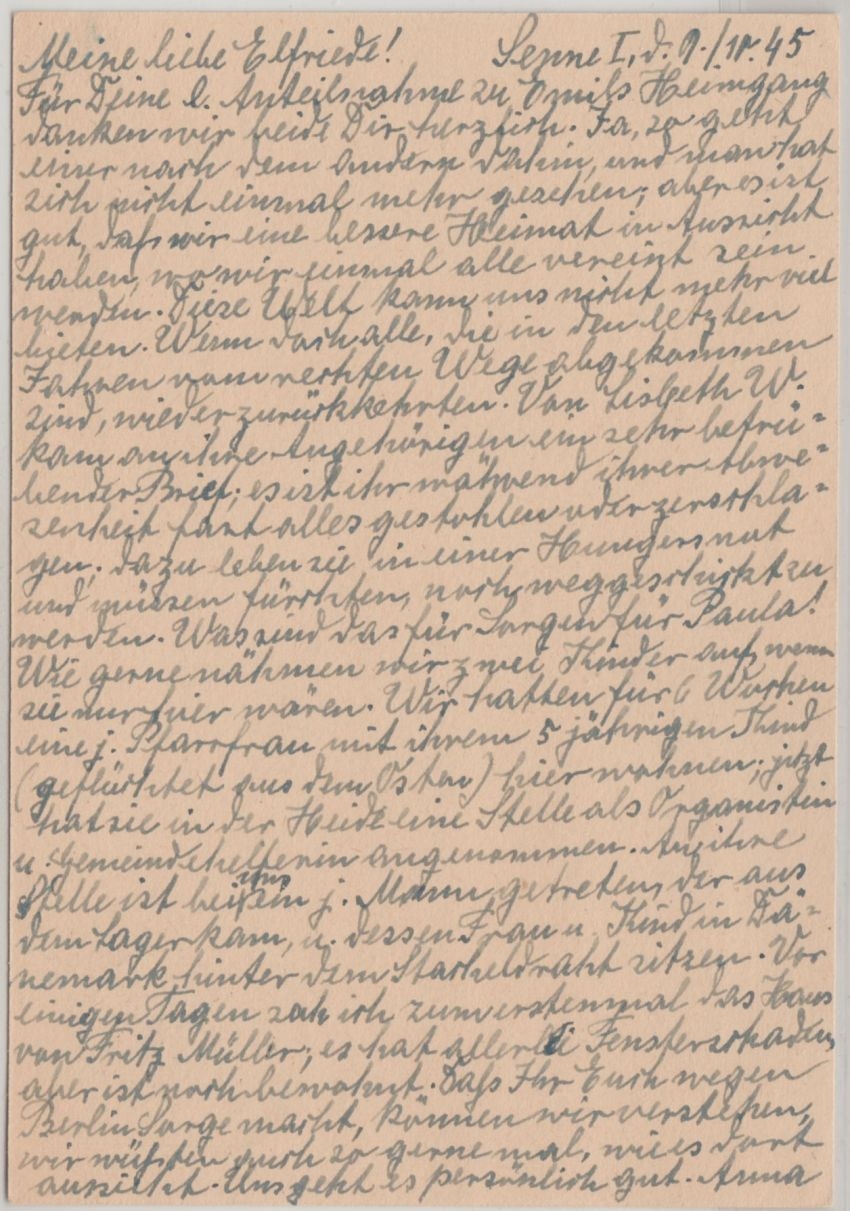 Meine liebe Elfriede! Senne I, d. 9./10.45
Für Deine l. Anteilnahme zu Emils Heimgang
danken wir beide Dir herzlich. Ja, so geht
einer nach dem andern dahin, und man hat
sich nicht einmal mehr gesehen; aber es ist
gut, daß wir eine bessere Heimat in Aussicht
haben, wo wir einmal alle vereint sein
werden. Diese Welt kann uns nicht mehr viel
bieten. Wenn doch alle, die in den letzten
Jahren vom rechten Wege abgekommen
sind, wieder zurückkehrten. Von Lisbeth W.
kam an ihre Angehörigen ein sehr betrü-
bender Brief; es ist ihr während ihrer Abwe-
senheit fast alles gestohlen oder zerschla-
gen; dazu leben sie in einer Hungersnot
und müssen fürchten, noch weggeschickt zu
werden. Was sind das für Sorgen für Paula!
Wie gerne nähmen wir zwei Kinder auf, wenn
sie nur hier wären. Wir hatten für 6 Wochen
eine j. Pfarrfrau mit ihrem 5 jährigen Kind
(geflüchtet aus dem Osten) hier wohnen; jetzt
hat sie in der Heide eine Stelle als Organistin
u. Gemeindehelferin angenommen. An ihre
Stelle ist bei uns ein j. Mann getreten, der aus
dem Lager kam, u. dessen Frau u. Kind in Dä-
nemark hinter dem Stacheldraht sitzen. Vor
einigen Tagen sah ich zum erstenmal das Haus
von Fritz Müller; es hat allerlei Fensterschaden,
aber ist noch bewohnt. Daß Ihr Euch wegen
Berlin Sorge macht, können wir verstehen,
wir wüßten auch so gerne mal, wie es dort
aussieht. Uns geht es persönlich gut. Anna